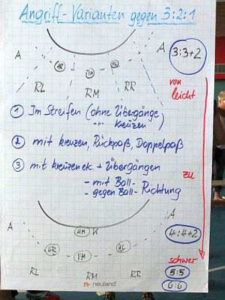 Angriff-Varianten gegen 3:2:1
A
A
3:3+2
RL
RM
RR
von
leicht
① Im Streifen (ohne Übergänge
" kreuzen)
② mit kreuzen Rückpaß, Doppelpaß
③ mit kreuzen etc + Übergängen
zu
- mit Ball-
- gegen Ball- Richtung
A
A
4:4+2
RL
RM
RR
schwer
5:5
6:6
neuland